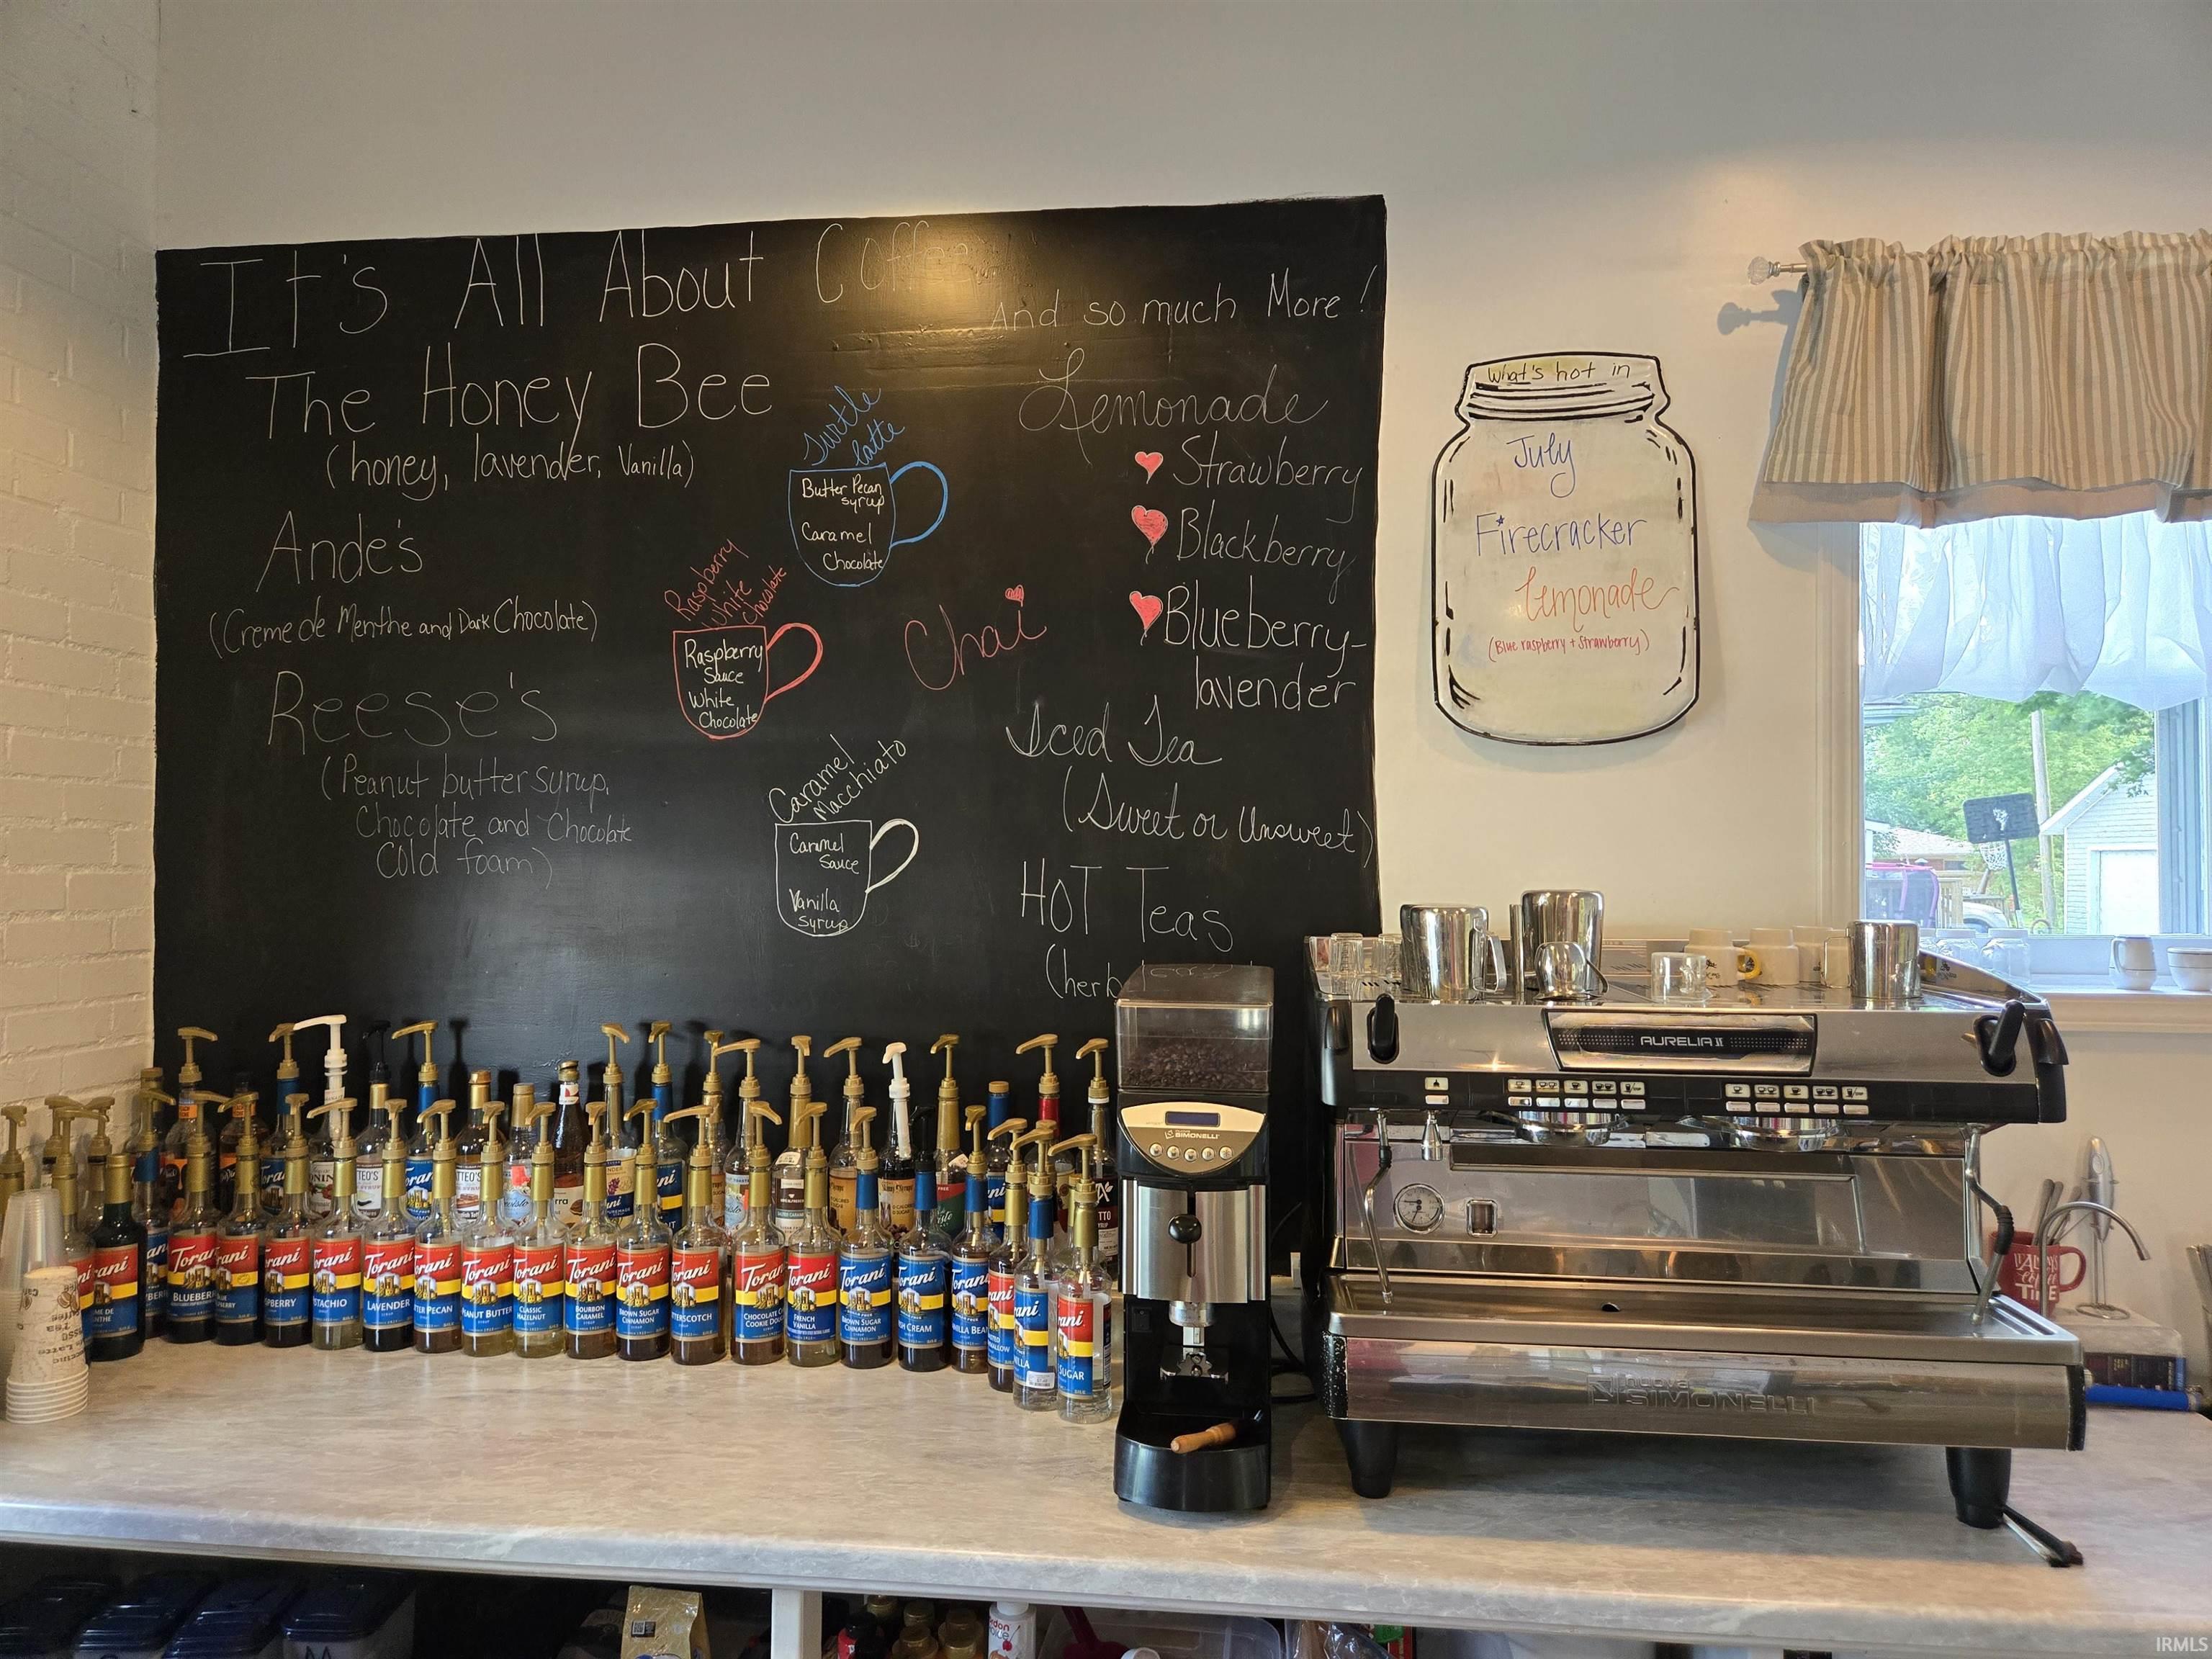 It's All About Coffee
And so much More!
The Honey Bee
(honey, lavender, Vanilla)
Ande's
(Creme de Menthe and Dark Chocolate)
Reese's
(Peanut butter syrup,
Chocolate and Chocolate
Cold foam)
Turtle
latte
Butter Pecan
syrup
Caramel
Chocolate
Raspberry
White
Chocolate
Raspberry
Sauce
White
Chocolate
Caramel
Macchiato
Caramel
Sauce
Vanilla
syrup
Chai
Lemonade
Strawberry
Blackberry
Blueberry-
lavender
Iced Tea
(Sweet or Unsweet)
HOT Teas
(herb
What's hot in
July
Firecracker
Lemonade
(Blue raspberry + Strawberry)
AURELIA II
SIMONELLI
NUOVA
SIMONELLI
Torani
BLUEBER
Torani
PBERRY
Torani
STACHIO
Torani
LAVENDER
Torani
TER PECAN
Torani
PEANUT BUTTER
Torani
CLASSIC
HAZELNUT
Torani
BOURBON
CARAMEL
Torani
BROWN SUGAR
CINNAMON
Torani
TERSCOTCH
Torani
CHOCOLATE C
COOKIE DOU
Torani
FRENCH
VANILLA
Torani
BROWN SUGAR
CINNAMON
Torani
SH CREAM
Torani
NILLA BEA
rani
LLA
rani
SUGAR
IRMLS